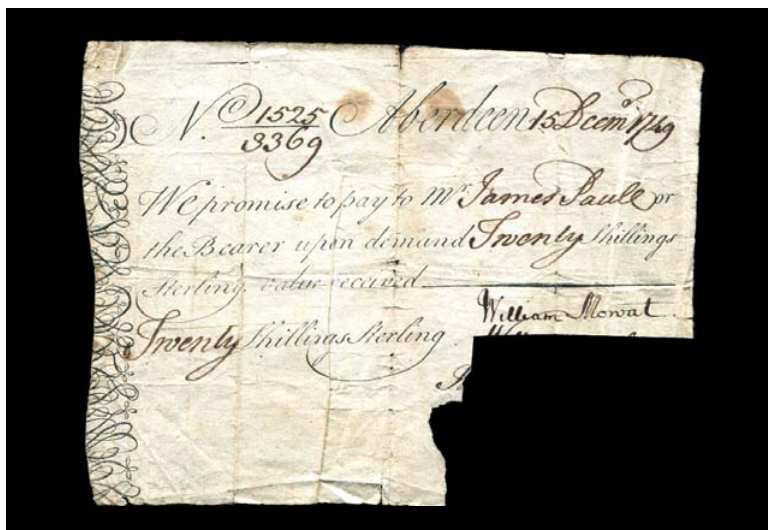 No 1525/3369 Aberdeen 15 Decemr 1749
We promise to pay to Mr James Paule or
the Bearer upon demand Twenty Shillings
Sterling value received
William Mowat
Twenty Shillings Sterling